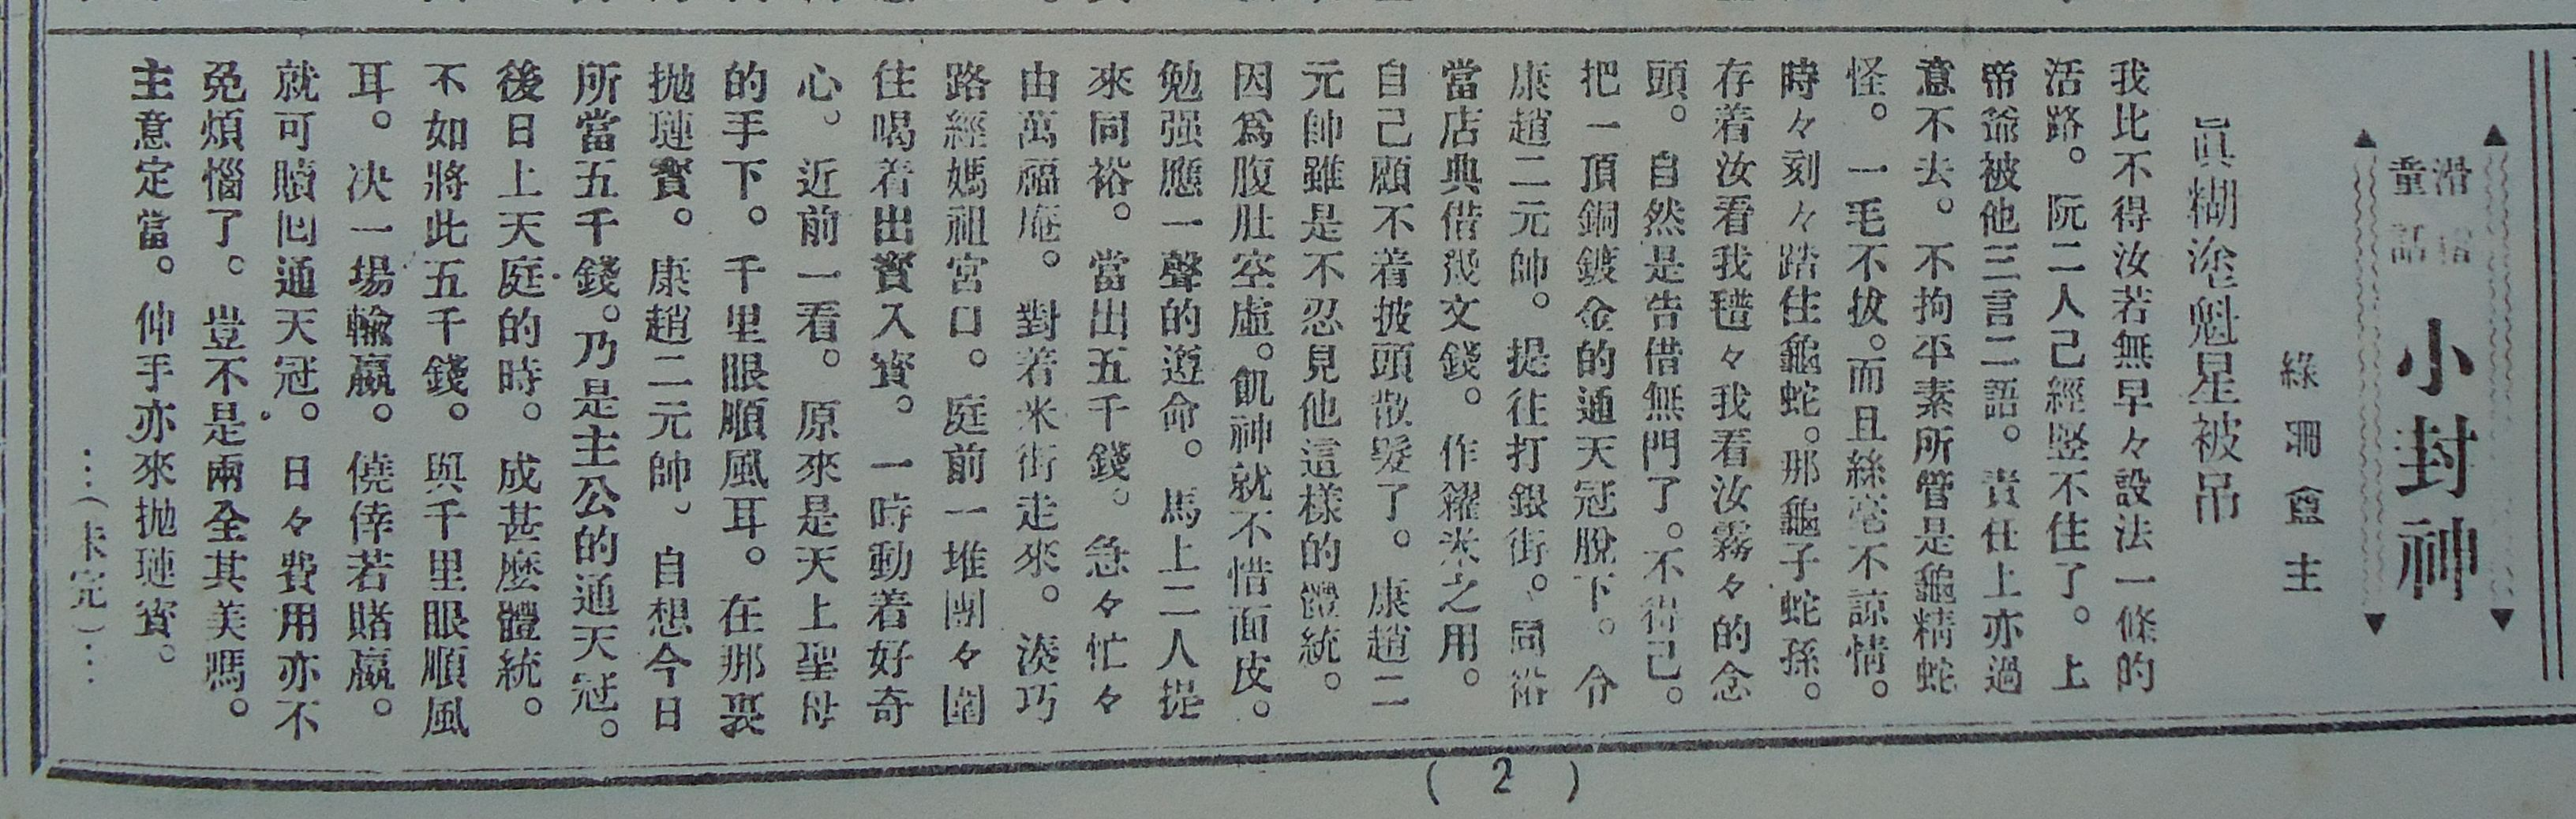 滑稽
童話
小封神
綠珊盦主
眞糊塗魁星被吊
我比不得汝若無早々設法一條的
活路。阮二人己經堅不住了。上
帝爺被他三言二語。責任上亦過
意不去。不拘平素所管是龜精蛇
怪。一毛不拔。而且絲毫不諒情。
時々刻々踏住龜蛇。那龜子蛇孫。
存着汝看我䆀々我看汝霧々的念
頭。自然是告借無門了。不得己。
把一頂銅鍍金的通天冠脫下。令
康趙二元帥。提往打銀街。同裕
當店典借幾文錢。作糴米之用。
自己顧不着披頭散髮了。康趙二
元帥雖是不忍見他這樣的體統。
因爲腹肚空虛。飢神就不惜面皮。
勉强應一聲的遵命。馬上二人提
來同裕。當出五千錢。急々忙々
由萬福庵。對着米街走來。湊巧
路經媽祖宮口。庭前一堆團々圍
住喝着出寶入寶。一時動着好奇
心。近前一看。原來是天上聖母
的手下。千里眼順風耳。在那裏
拋璉寶。康趙二元帥。自想今日
所當五千錢。乃是主公的通天冠。
後日上天庭的時。成甚麼體統。
不如將此五千錢。與千里眼順風
耳。决一場輸贏。僥倖若賭贏。
就可贖回通天冠。日々費用亦不
免煩惱了。豈不是兩全其美嗎。
主意定當。伸手亦來拋璉寶。
…(未完)…
(2)